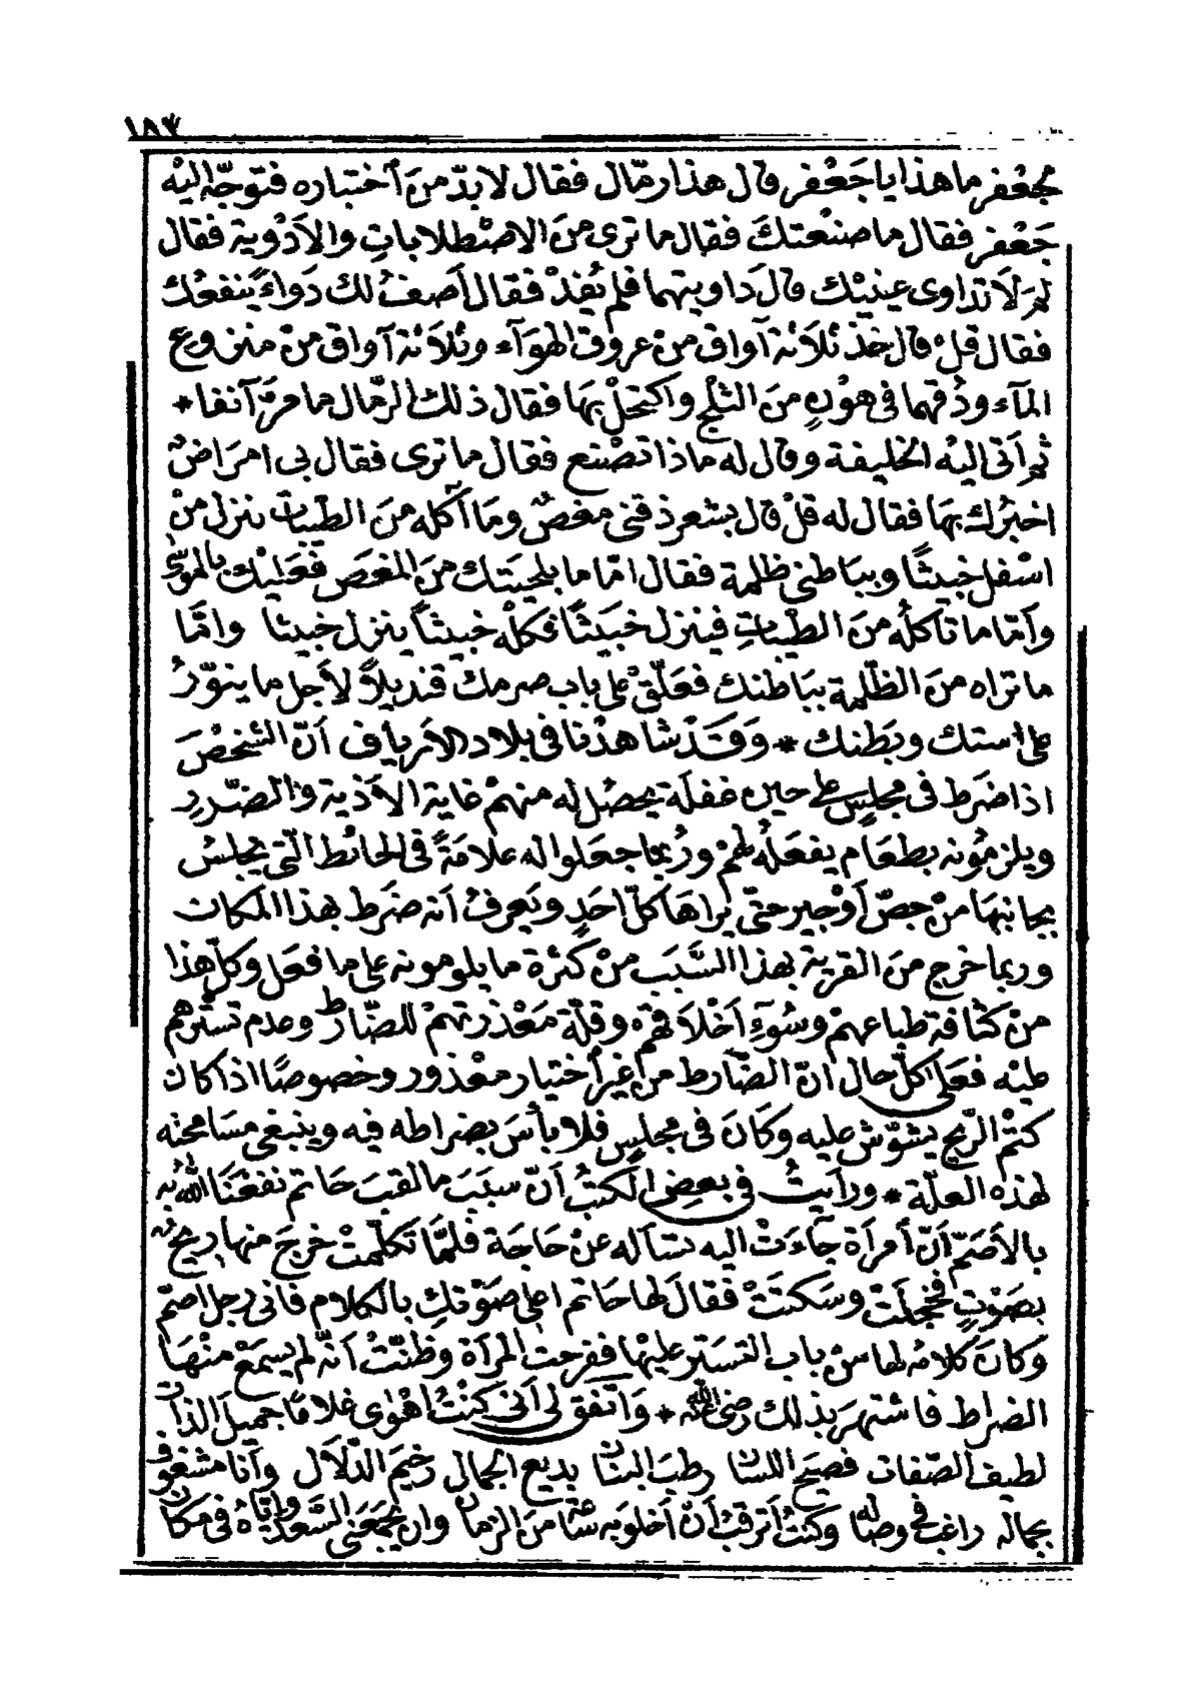 ١٨٣
لجعفر ما هذا يا جَعْفر قال هذا رمّال فقال لابدّ منَ أختباره فتوجّه اليْه
جَعْفر فقال ما صنْعتكَ فقال ما ترى منَ الاصْطلاباتِ والاَدْوية فقال
لِمَ لاَ تداوى عينيْك قال دَاويتهما فلم يُفدْ فقال أصفُ لك دَواءً ينفعُك
فقال قلْ قال خذْ ثلاَثة آواق منْ عروق الهوَآء وثلاَثة آواق منْ منزوع
المآء ودُقهما فى هوْنٍ منَ الثلج واكتحلْ بهَا فقال ذلك الرّمال ما مرّ آنفا *
ثم أتى اليْه الخليفة وقال له ماذا تصْنع فقال ما ترى فقال بى امرَاضٌ
اخبرُك بهَا فقال له قلْ قال بشعر ذقنى مغصٌ ومَا آكله منَ الطيبات ينزل منْ
اسْفل خبيثًا وببَاطنى ظلمة فقال امّا ما بلحيتك منَ المغَص فعَليْك بالموسَى
وأمّا ما تأكلُه منَ الطيباتِ فينزل خبَيثًا فكلْه خبيثاً ينزل خبيثا وامّا
ما تراه منَ الظّلمة ببَاطنك فعَلّقْ على باب صرمك قنديلاً لأجل ما ينوّرُ
على أستك وبَطنك * وَقَدْ شاهدْنا فى بلاد الأرياف أنّ الشخصَ
اذا ضَرط فى مجلسٍ على حين غفلَة يحصُل له منهمْ غاية الاَذية والضّررِ
ويلزمُونه بطعَام يفعَلُه لهمْ ورُبما جعَلوا له علاَمَةً فى الحائط التى يجلسُ
بجانبهَا منْ جصّ أوْ جير حتى يراهَا كلّ احَدٍ ويَعرفُ أنه ضرَط بهذا المكان
وربما خرج منَ القرية بهذا السَّبَب منْ كثرة ما يلومونه على ما فعَل وكلّ هذا
منْ كثافة طباعهمْ وسُوءِ أخْلاَقهمْ وقلّة مَعْذرَتهمْ للضّارط وعدم تستّرهم
عليْه فعَلى كلّ حال انّ الضّارط من غير أختيار معْذور وخصوصًا اذا كان
كتْم الرّيح يشوّش عليه وكَانَ فى مجلسٍ فلا بأسَ بضراطه فيه وينبغى مسَامحته
لهذه العلّة * ورأيتُ فى بعض الكتُب أنّ سبَبَ ما لقبَ حَاتم نفعَنَا اللّٰه به
بالأصَمّ أنّ أمرأة جآءَتْ اليه تسأله عنْ حَاجَة فلمّا تَكلمتْ خرجَ منها ريحٌ
بصَوْتٍ فخجلَتْ وسَكتَتْ فقالَ لها حَاتم اعلى صَوْتكِ بالكلام فانى رجل اصمّ
وكانَ كلامُه لها منْ باب التستر عليْها ففرحت المرأة وظنّتْ أنه لم يسمَعْ منْهَا
الضراط فاشتهرَ بذلك رضى اللّٰه عنه * وَاتّفق لى أنى كنْتُ أهْوَى غلامًا جميل الذات
لطيف الصّفات فصيحَ اللسان رطبَ البنان بديع الجمال رخيم الدّلاَل وأنا مشغوف
بجماله راغب فى وصاله وكنتُ أترقبُ أنّ أخلو به سَاعة منَ الزمان وان يجمَعَنى السَّعدُ وايّاه فى مكان